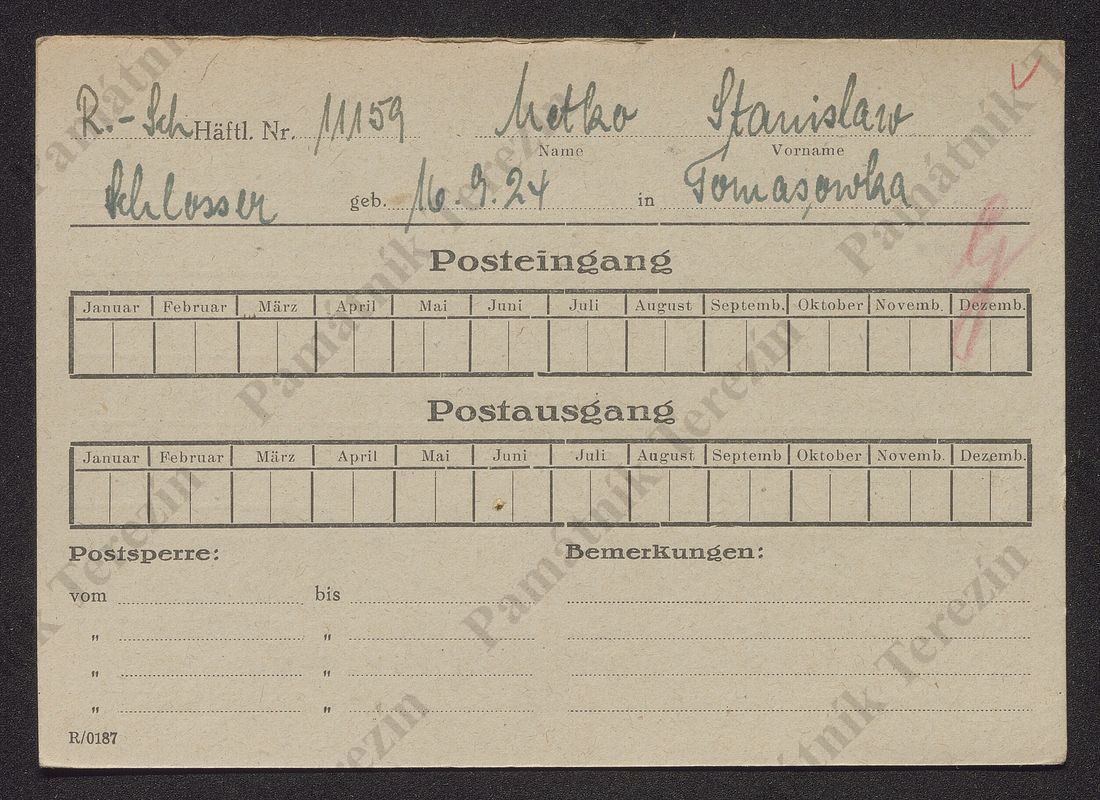 R.-Sch Häftl. Nr. 11159 Metko Stanislaw
Name Vorname
Schlosser geb. 16.9.24 in Tomasowka
Posteingang
Januar Februar März April Mai Juni Juli August Septemb. Oktober Novemb. Dezemb.
Postausgang
Januar Februar März April Mai Juni Juli August Septemb Oktober Novemb. Dezemb.
Postsperre: Bemerkungen:
vom bis
" "
" "
" "
R/0187
Památník Terezín